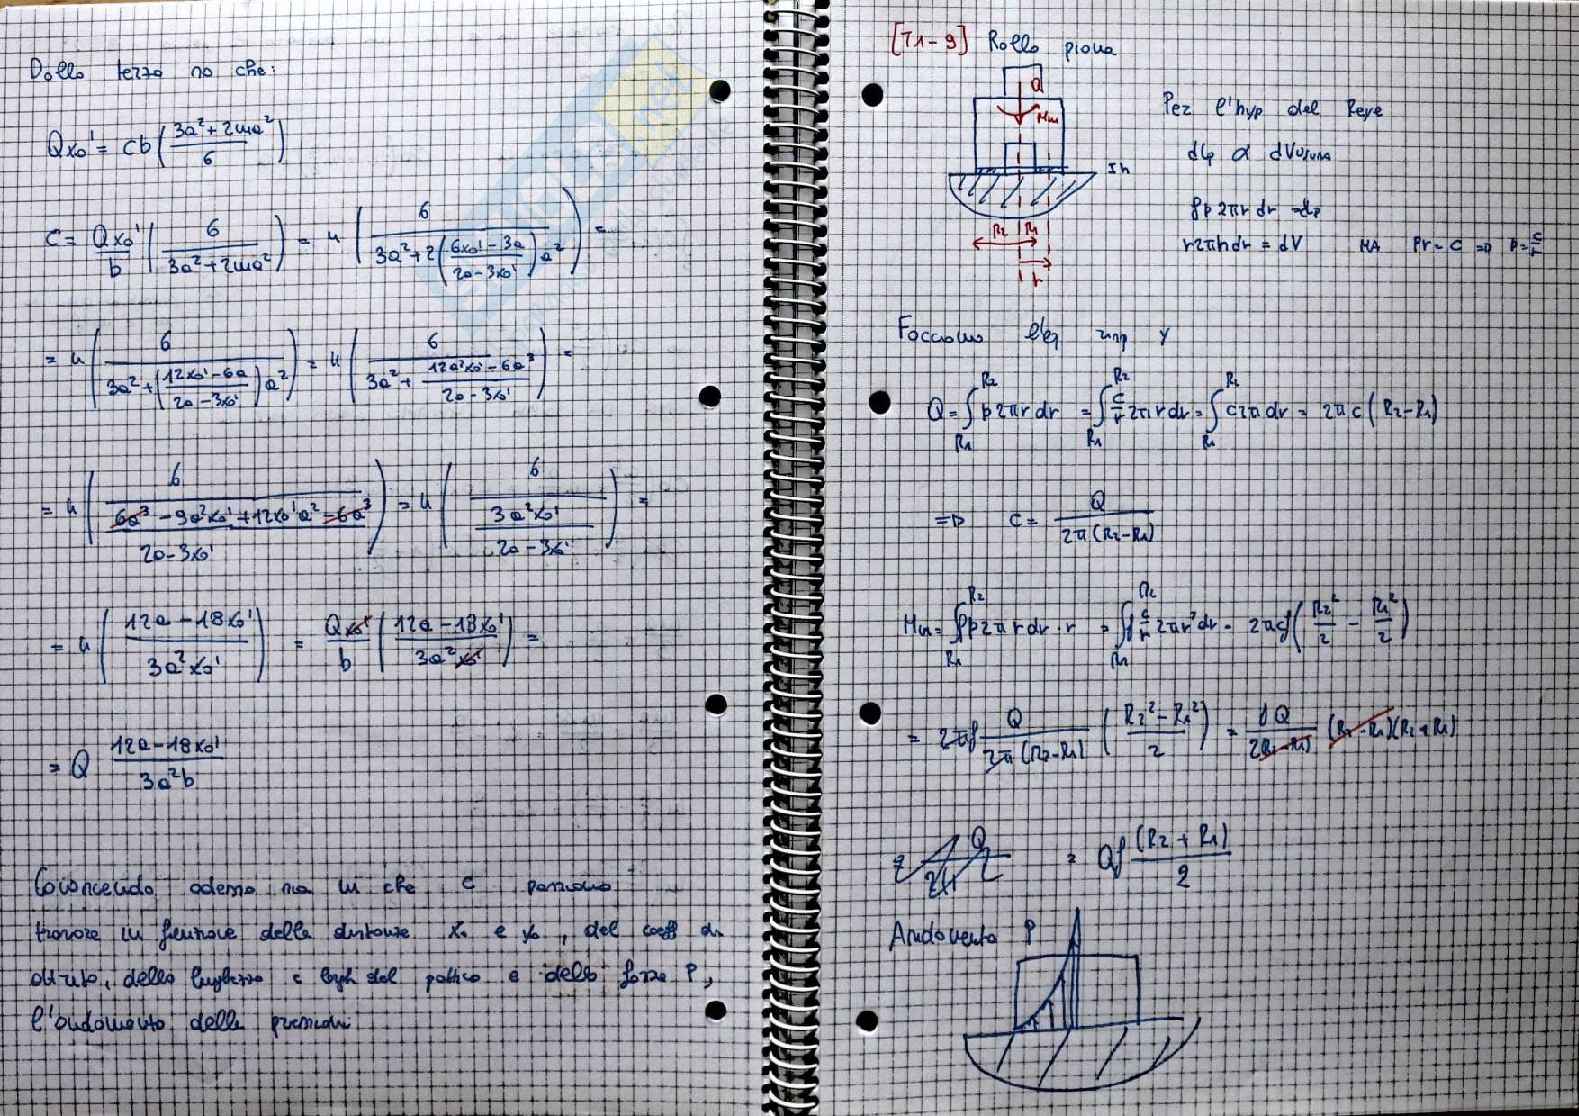 Dalla terza ho che:
Qx₀' = cb ( (3a² + 2ma²) / 6 )
c = Qx₀'/b ( 6 / (3a² + 2ma²) ) = u ( 6 / (3a² + 2 ( (6x₀' - 3a) / (2a - 3x₀') ) a²) ) =
= u ( 6 / (3a² + ( (12x₀' - 6a) / (2a - 3x₀') ) a²) ) = u ( 6 / (3a² + (12a²x₀' - 6a³) / (2a - 3x₀')) ) =
= u ( 6 / ( (6a³ - 9a²x₀' + 12x₀'a² - 6a³) / (2a - 3x₀') ) ) = u ( 6 / ( 3a²x₀' / (2a - 3x₀') ) ) =
= u ( (12a - 18x₀') / 3a²x₀' ) = Qx₀'/b ( (12a - 18x₀') / 3a²x₀' ) =
= Q (12a - 18x₀') / 3a²b
adesso sia m che c possiamo
trovare in funzione delle distanze x₀ e y₀, del coeff di
attrito, della lunghezza e del pattino e della forza P,
l'andamento delle pressioni
[T1-9] Ralla piana
Q
Mm
In
R2 R1
r
Per l'hyp del Reye
dLp α dVusura
fp 2πr dr = dLp
r2πhdr = dV MA Pr = C => P = c/r
Facciamo l'eq imp Y
Q = ∫R1 R2 p2πr dr = ∫R1 R2 c/r 2πr dr = ∫R1 R2 c2π dr = 2πc (R2 - R1)
=> C = Q / 2π(R2 - R1)
Mm = ∫R1 R2 fp2πr dr · r = ∫R1 R2 f c/r 2πr² dr = 2πcf ( R2²/2 - R1²/2 )
= 2πf Q / 2π(R2 - R1) ( (R2² - R1²) / 2 ) = fQ / 2(R2 - R1) (R2 - R1)(R2 + R1)
= Qf (R2 + R1) / 2
Andamento P